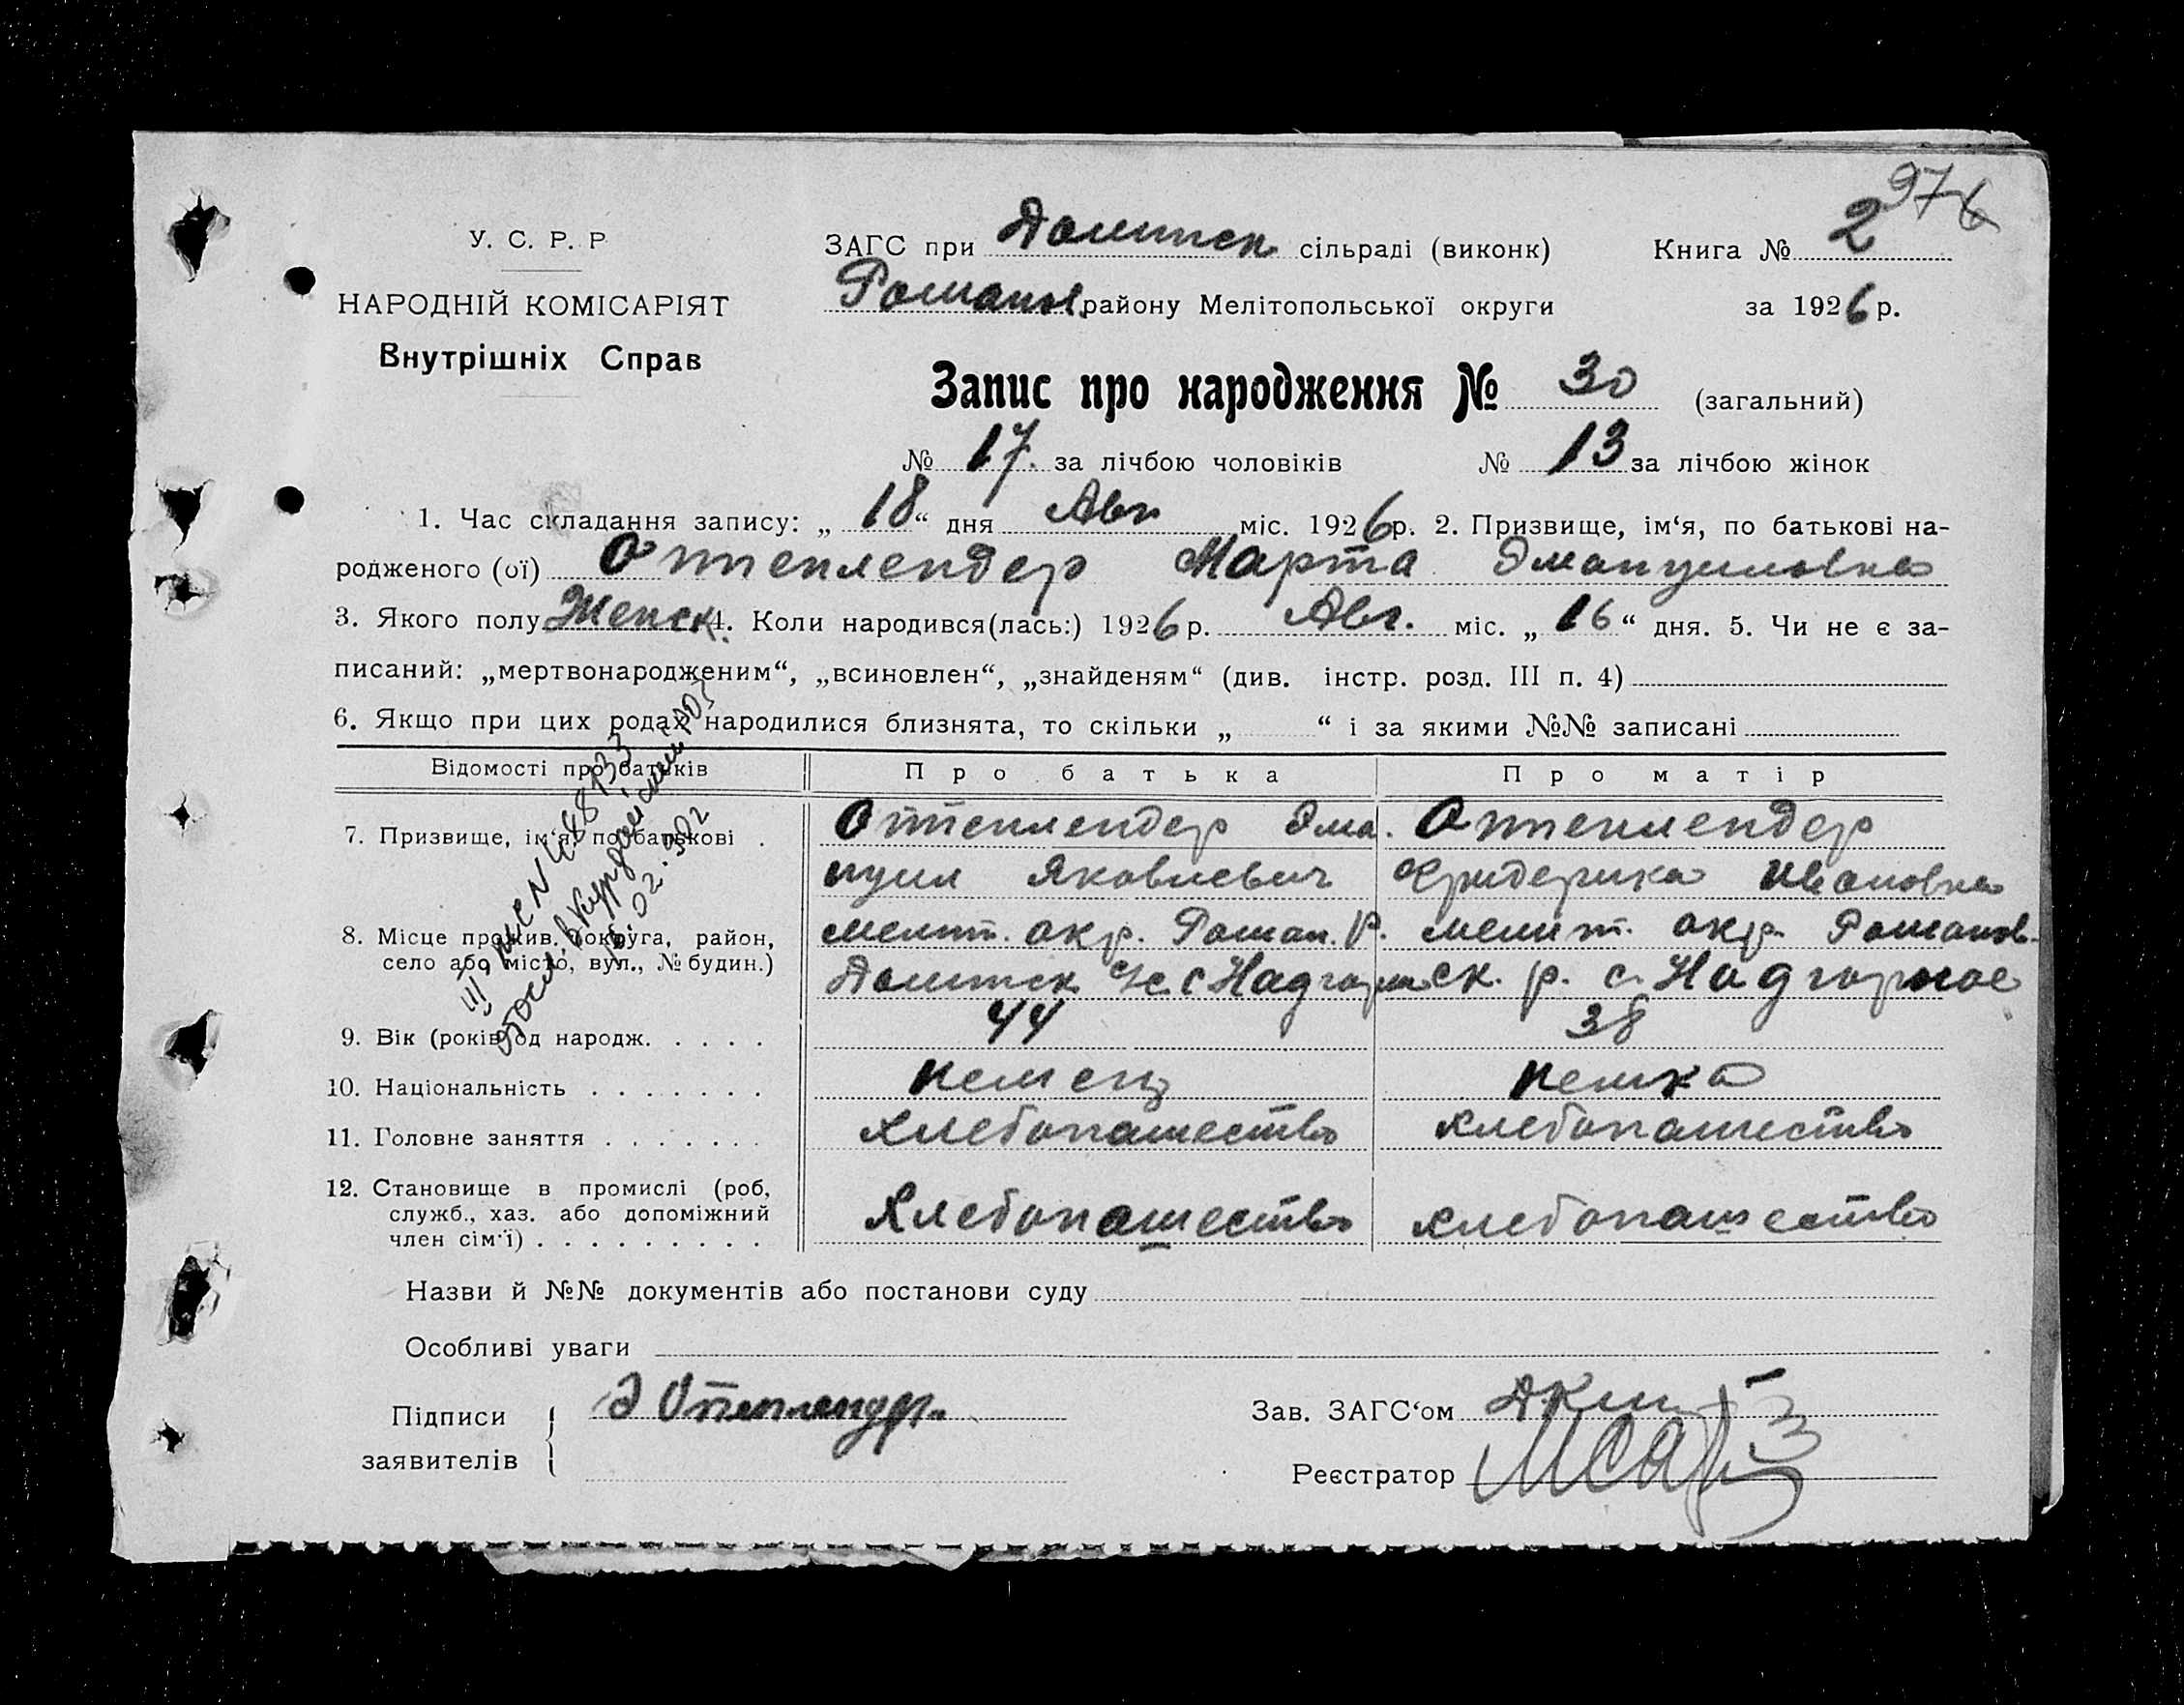 976
У. С. Р. Р
ЗАГС при Долитск сільраді (виконк) Книга № 2
НАРОДНІЙ КОМІСАРІЯТ
Романов району Мелітопольської округи за 1926 р.
Внутрішніх Справ
Запис про народження № 30 (загальний)
№ 17. за лічбою чоловіків № 13 за лічбою жінок
1. Час складання запису: „ 18 “ дня Авг міс. 1926 р. 2. Призвище, ім‘я, по батькові на-
родженого (ої) Оттенлендер Марта Эмануиловна
3. Якого полу Женск. 4. Коли народився(лась:) 1926 р. Авг. міс. „ 16 “ дня. 5. Чи не є за-
писаний: „мертвонародженим“, „всиновлен“, „знайденям“ (див. інстр. розд. III п. 4)
6. Якщо при цих родах народилися близнята, то скільки „ “ і за якими №№ записані
Відомості про батьків Про батька Про матір
7. Призвище, ім‘я, по батькові . Оттенлендер Эма. Оттенлендер
нуил Яковлевич Фридерика Ивановна
8. Місце прожив. (округа, район, Мелит. окр. Роман. Р. Мелит. окр. Романов-
село або місто, вул., № будин.) Долитск с Надгорн ск. р. с. Надгорное
9. Вік (років) од народж. . . . . 44 38
10. Національність . . . . . . . немец немка
11. Головне заняття . . . . . . . хлебопашество хлебопашество
12. Становище в промислі (роб,
служб., хаз. або допоміжний Хлебопашество хлебопашество
член сім‘ї) . . . . . . . . .
Назви й №№ документів або постанови суду
Особливі уваги
Підписи Э Оттенлендер Зав. ЗАГС‘ом
заявителів Реєстратор